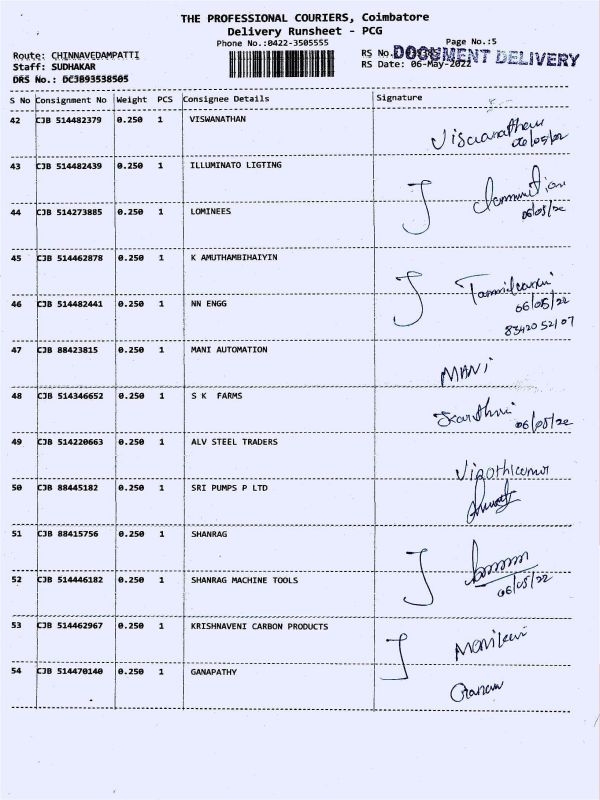 THE PROFESSIONAL COURIERS, Coimbatore
Delivery Runsheet - PCG
Phone No.:0422-3505555
Page No.:5
Route: CHINNAVEDAMPATTI
RS No.
DOCUMENT DELIVERY
Staff: SUDHAKAR
RS Date: 06-May-2022
DRS No.: DCJB93538505
S No Consignment No Weight PCS Consignee Details Signature
42 CJB 514482379 0.250 1 VISWANATHAN
06/05/22
43 CJB 514482439 0.250 1 ILLUMINATO LIGTING
44 CJB 514273885 0.250 1 LOMINEES
06/05/22
45 CJB 514462878 0.250 1 K AMUTHAMBIHAIYIN
46 CJB 514482441 0.250 1 NN ENGG
06/05/22
83420 52107
47 CJB 88423815 0.250 1 MANI AUTOMATION
MANI
48 CJB 514346652 0.250 1 S K FARMS
06/05/22
49 CJB 514220663 0.250 1 ALV STEEL TRADERS
50 CJB 88445182 0.250 1 SRI PUMPS P LTD
51 CJB 88415756 0.250 1 SHANRAG
52 CJB 514446182 0.250 1 SHANRAG MACHINE TOOLS
06/05/22
53 CJB 514462967 0.250 1 KRISHNAVENI CARBON PRODUCTS
54 CJB 514470140 0.250 1 GANAPATHY